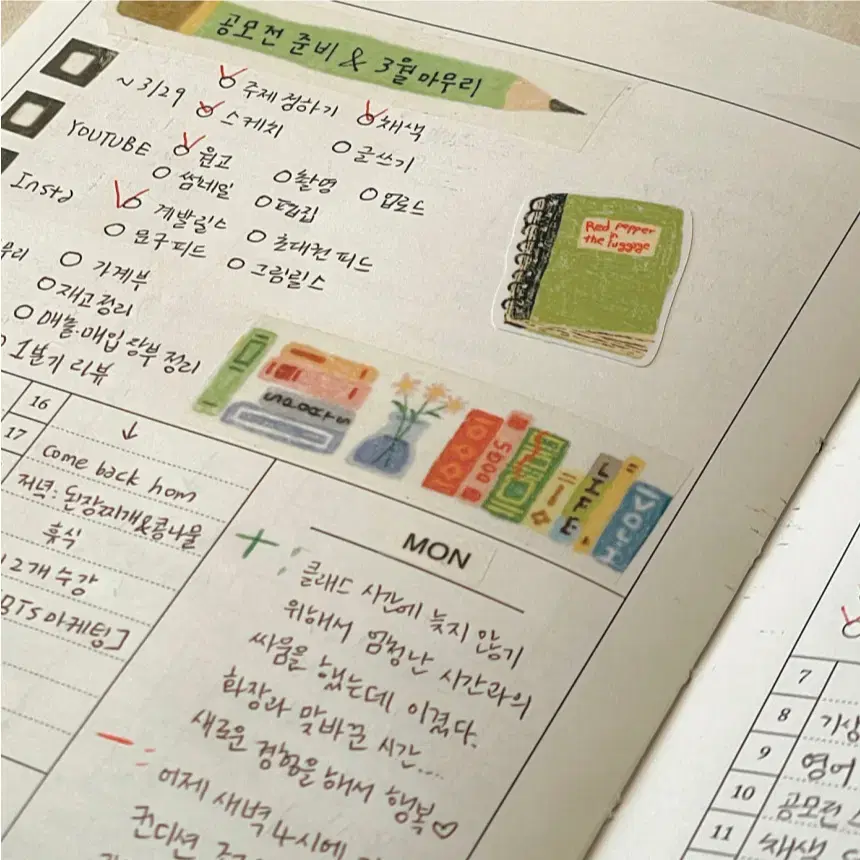 공모전 준비 & 3월 마무리
~ 3/29 주제 정하기 채색
스케치 글쓰기
YOUTUBE 원고 촬영 업로드
썸네일 편집
Insta 계발릴스 초대권 피드
요구피드 그림릴스
가계부
재고정리
매출·매입 장부 정리
1분기 리뷰
Red pepper
in
the luggage
SPORTS
DOGS
LIFE
16
17
come back hom
저녁: 된장찌개&콩나물
휴식
2개 수강
BTS 마케팅]
MON
+ : 클래드 시간에 늦지 않기
위해서 엄청난 시간과의
싸움을 했는데 이겼다.
화장과 맞바꾼 시간...
새로운 경험을 해서 행복♡
- : 어제 새벽 4시에
컨디션
7
8 기상
9 영어
10 공모전
11 채색